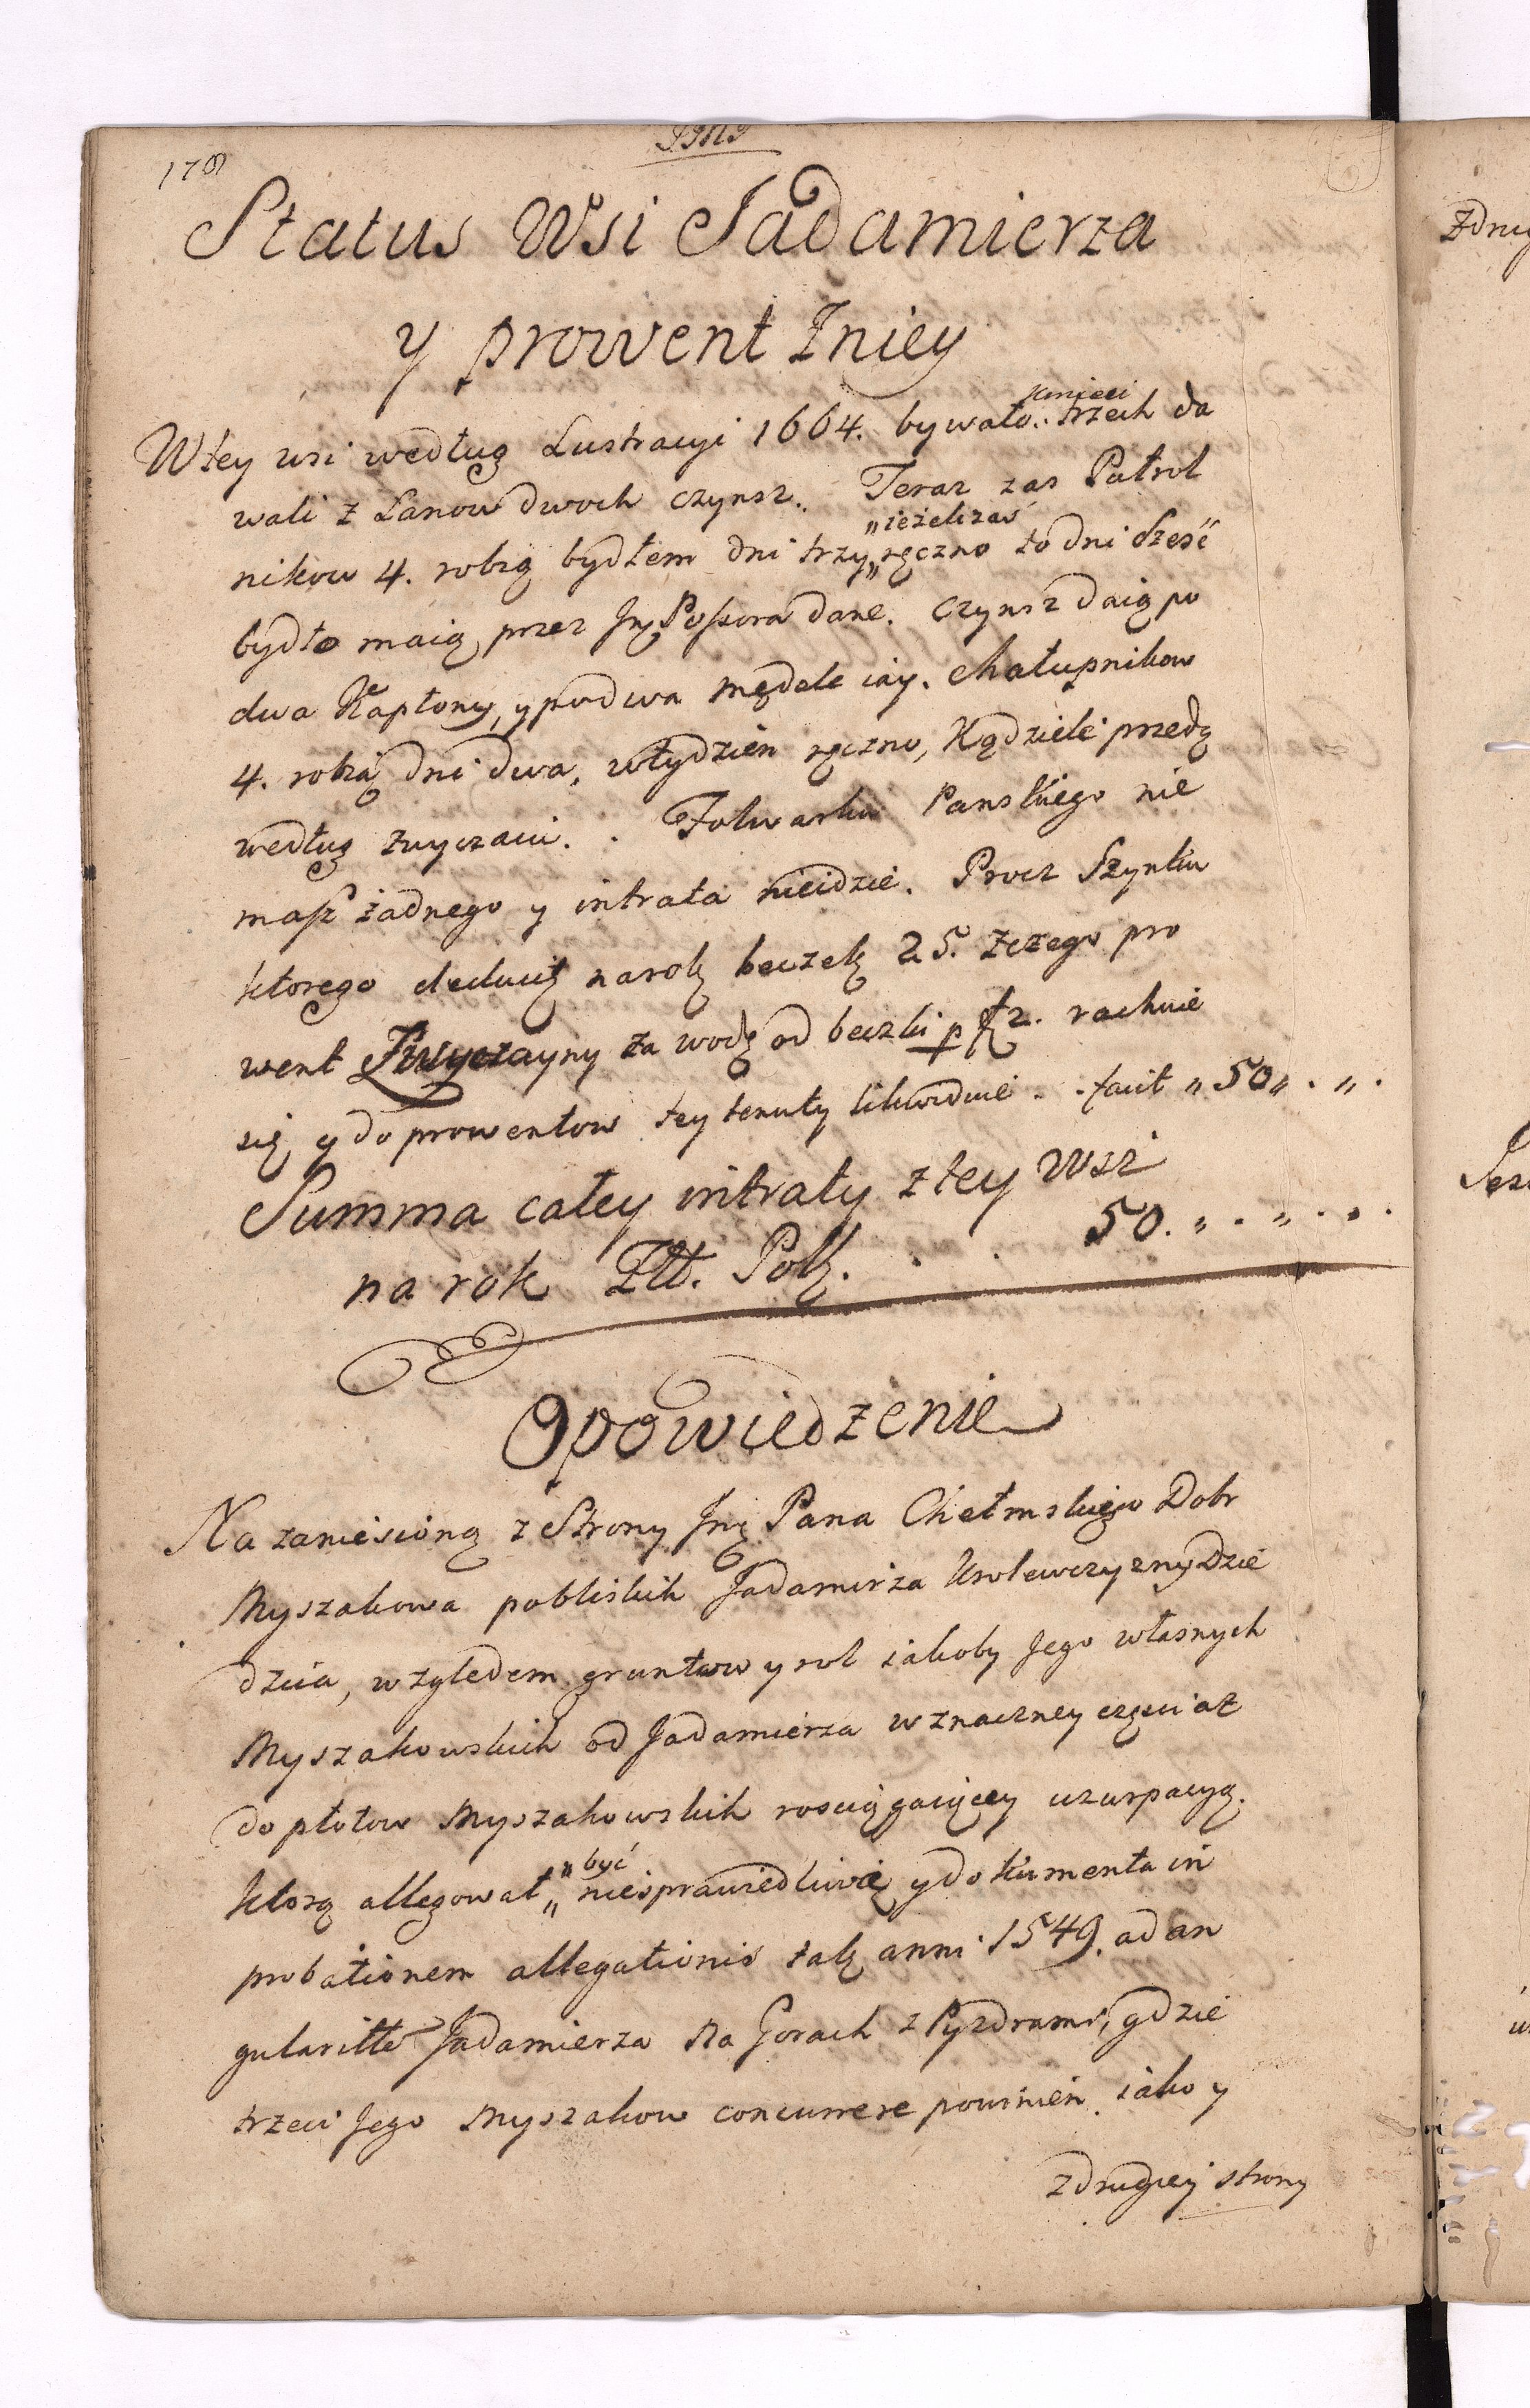 178
Status Wsi Jadamierza
y prowent Zniey
Wtey wsi według Lustracyi 1664. bywało.. kmieci trzech da
wali z Lanow dwoch czynsz.. Teraz zas Pułrol
nikow 4. robią bydłem dni trzy „ieżeli zaś ręczno to dni sześć
bydło maią przez Jmę Possora dane. czynsz daią po
dwa Kapłony, y po dwa mędele iay. chałupnikow
4. robią dni dwa, wtydzien ręczno, Kądziele przedą
według zwyczaiu.. Folwarku Panskiego nie
masz żadnego y intrata nieidzie. Procz Szynku
ktorego na rok beczek 25. zczego pro
went Zwyczayny za wodę od beczki p fz 2. rachuie
się y do prowentow tey tenuty likwiduie . . facit „ 50 „ . „ .
Summa całey intraty z tey Wsi
na rok Złł. Pol. . . 50. „ . „ . „ .
Opowiedzenie
Na zaniesioną z Strony Jmę Pana Chełmskiego Dobr
Myszakowa pobliskich Jadamirza Krolewczyzny Dzie
dzica, względem gruntow y rol iakoby Jego własnych
Myszakowskich od Jadamierza w znaczney części aż
do płotow Myszakowskich rosciągaiącey uzurpacyą.
ktorą allegował „być niesprawiedliwą y dokumenta in
probationem allegationis tak anni 1549. ad an
gularitte Jadamierza Na Gorach z Pyzdrami, gdzie
trzeci Jego Myszakow concurrere powinien iako y
zdrugiey strony